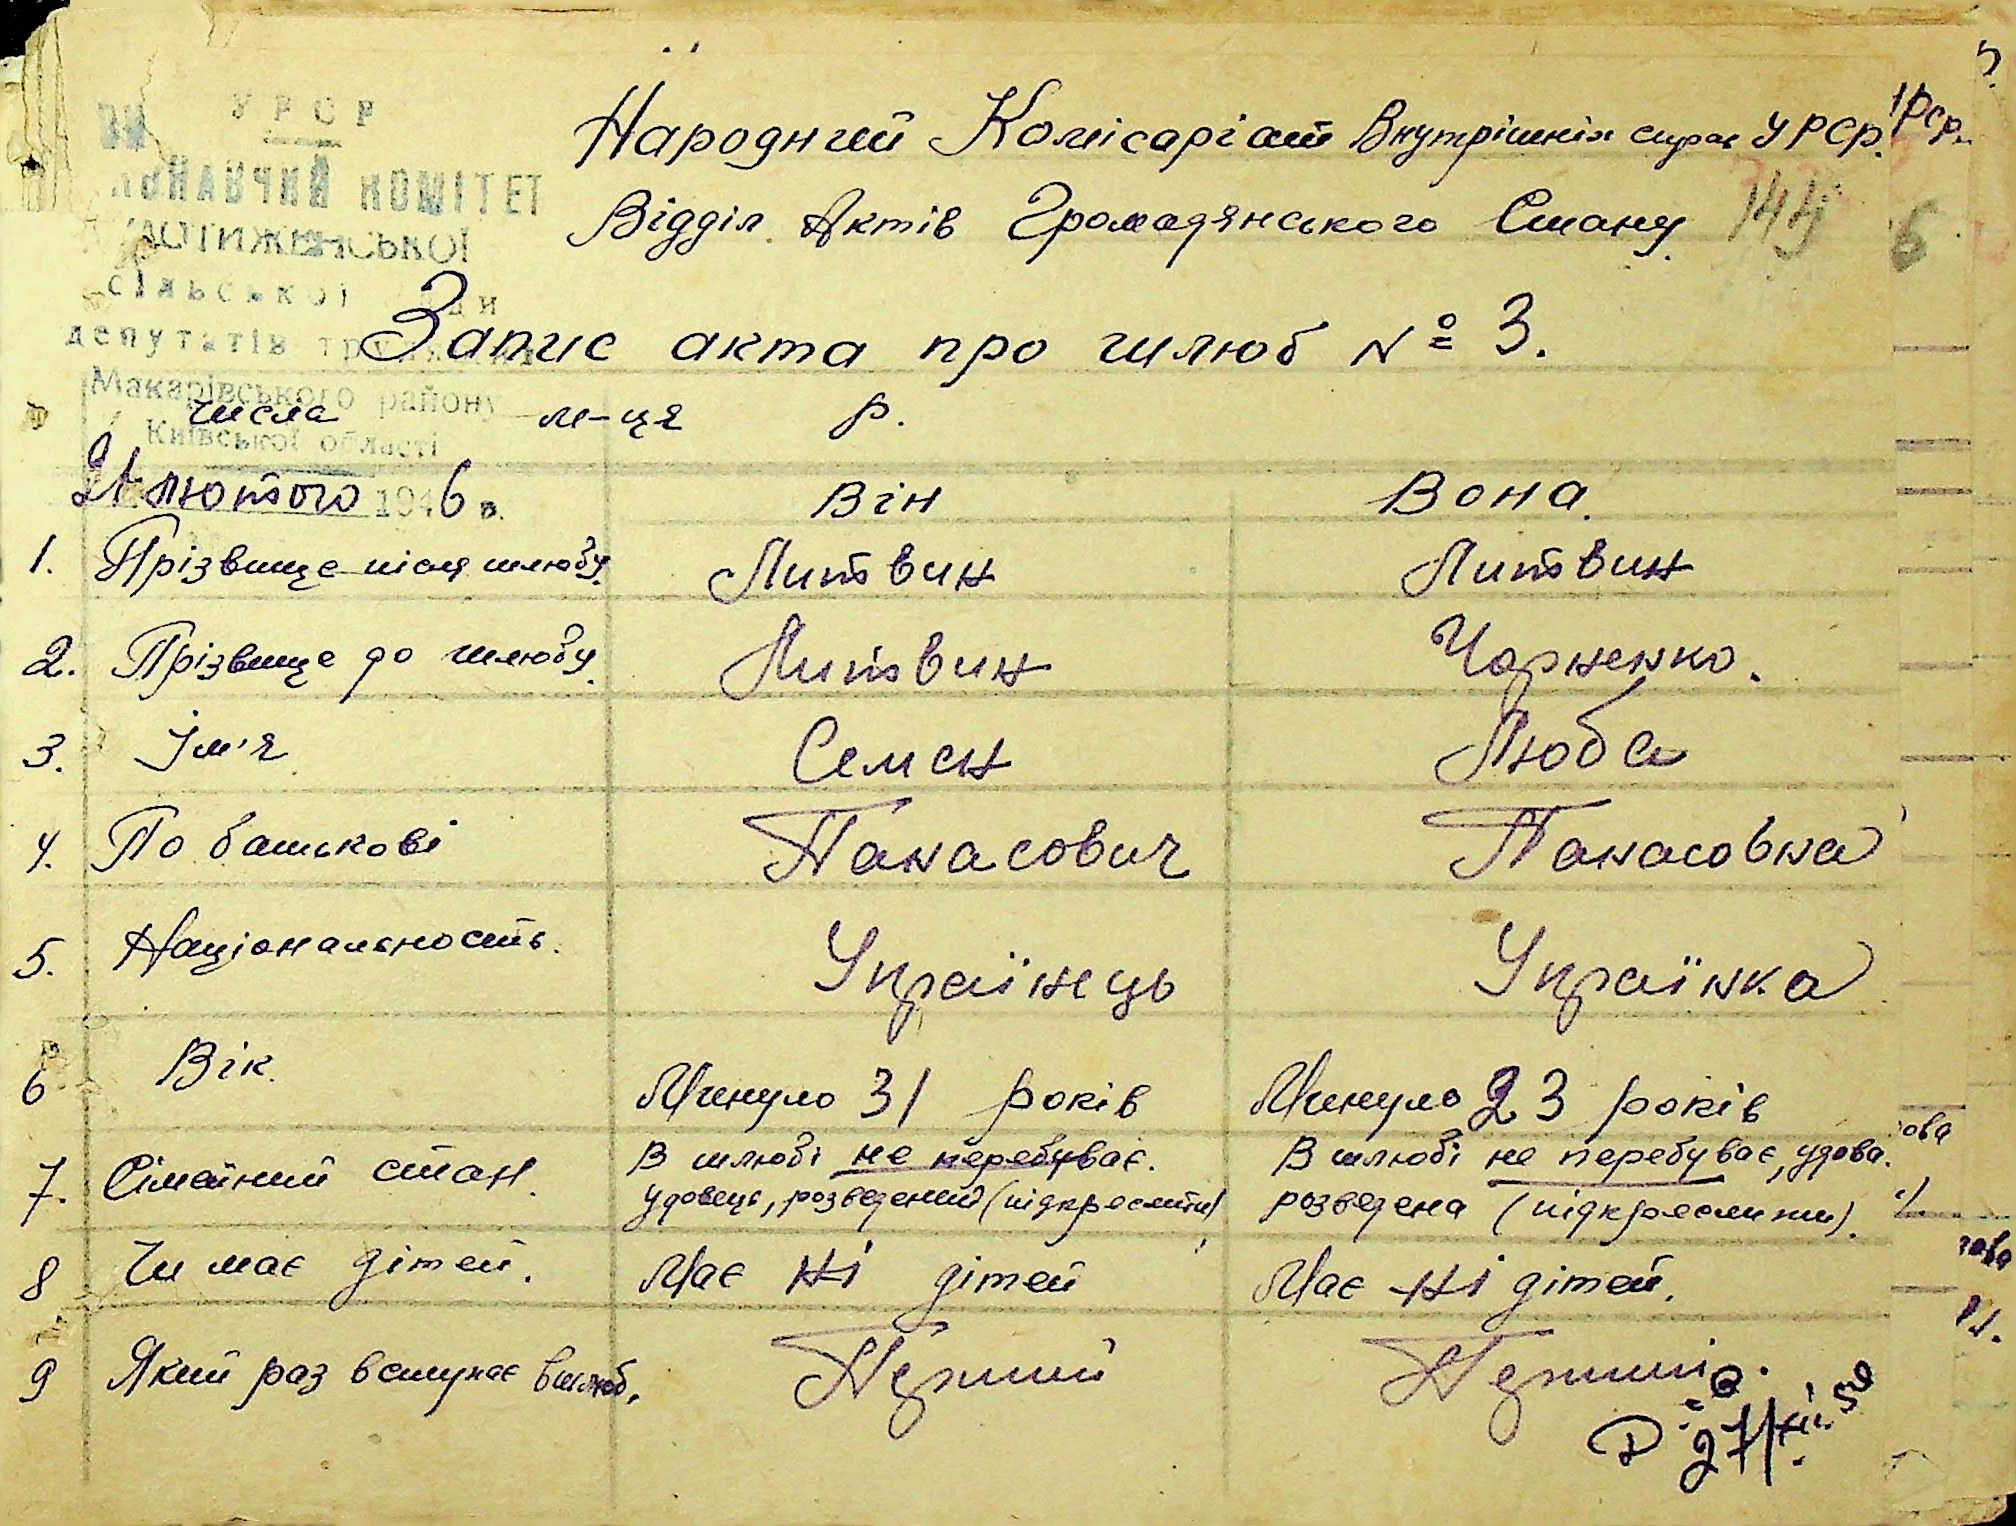 УРСР
Народний Комісаріат Внутрішніх справ УРСР.
КОМІТЕТ
Відділ Актів Громадянського Стану.
144
6
МОТИЖИНСЬКОЇ
сільської ради
Запис акта про шлюб № 3.
депутатів трудящих
Макарівського району
числа м-ця р.
Київської області
21 лютого 1946 р.
Він Вона.
1. Прізвище після шлюбу. Литвин Литвин
2. Прізвище до шлюбу. Литвин Чорненко.
3. Ім'я Семен Люба
4. По батькові Панасович Панасовна
5. Національность. Українець Українка
6 Вік. Минуло 31 років Минуло 23 років
7. Сімейний стан. В шлюбі не перебуває. В шлюбі не перебуває, удова.
удовець, розведений (підкреслити) розведена (підкреслити).
8 Чи має дітей. Має ні дітей Має ні дітей.
9 Який раз вступає вшлюб. Перший Перший.